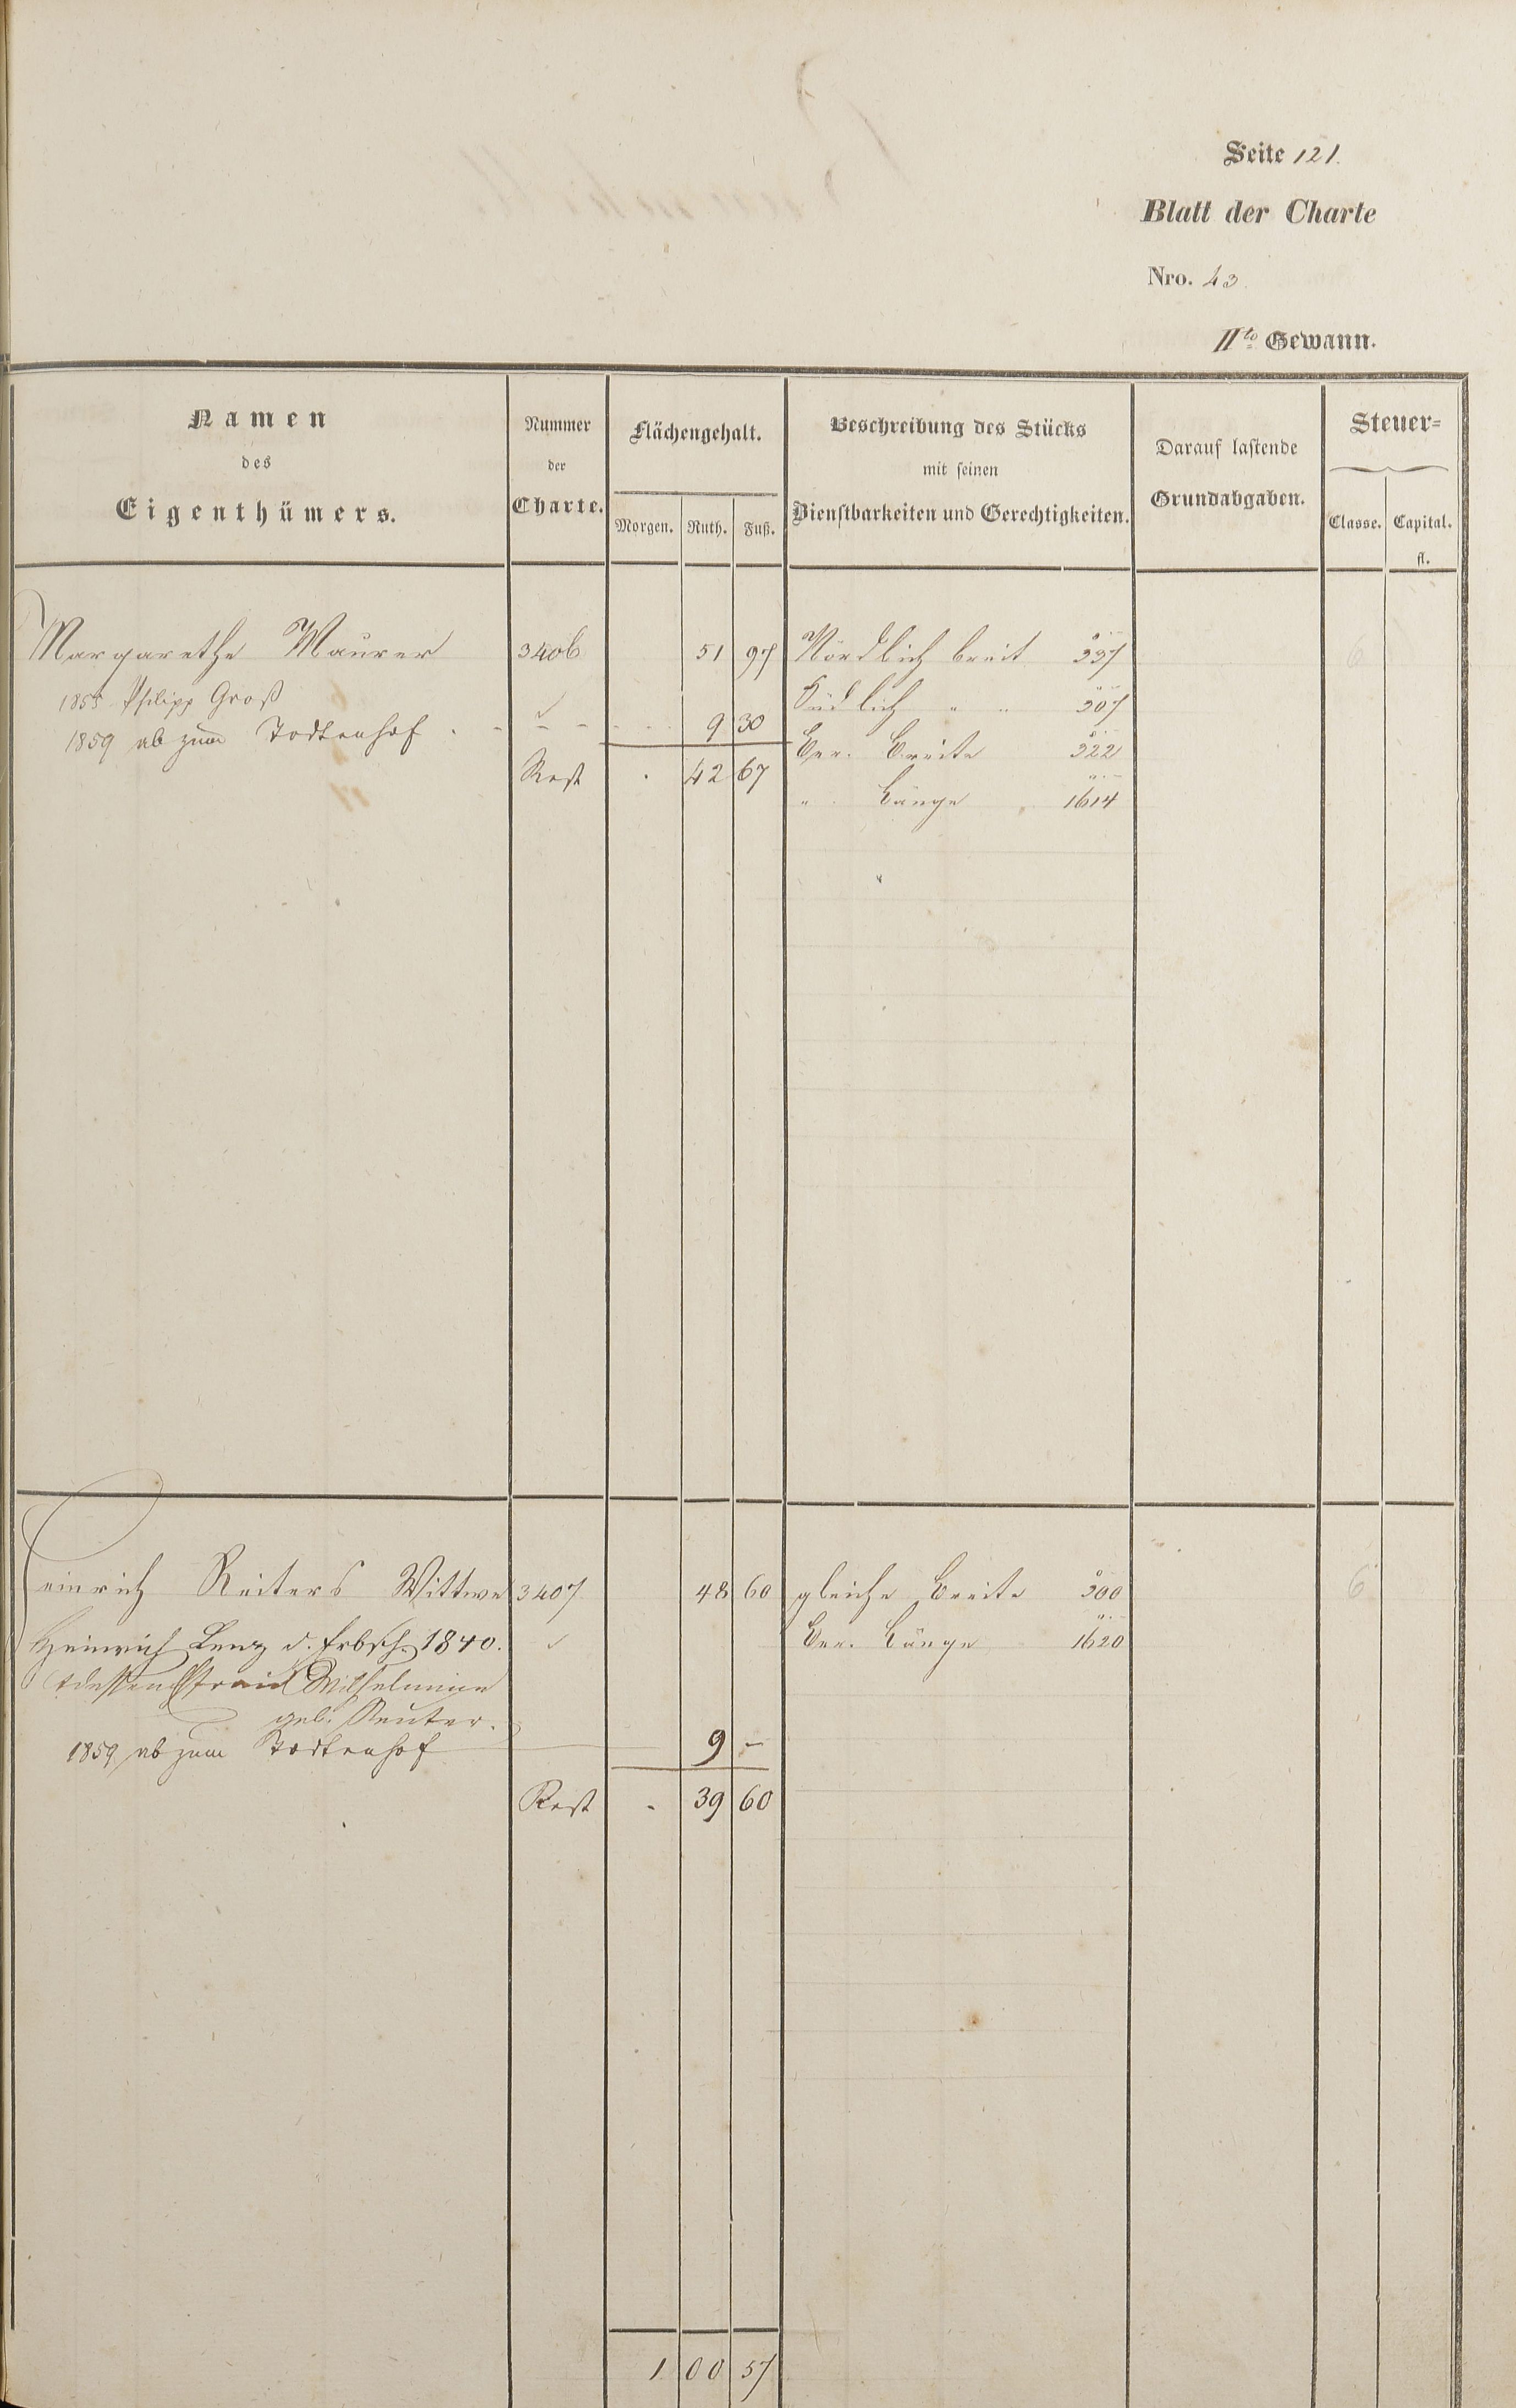 Seite 121.
Blatt der Charte
Nro. 43
IIte Gewann.
Namen
des
Eigenthümers.
Nummer
der
Charte.
Flächengehalt.
Morgen. Ruth. Fuß.
Beschreibung des Stücks
mit seinen
Dienstbarkeiten und Gerechtigkeiten.
Darauf lastende
Grundabgaben.
Steuer-
Classe. Capital.
fl.
Margarethe Maurer 3406 51 97 Nördlich breit 337 6
1855 Philipp Groß Südlich " " 307
1859 ab zum Todtenhof 9 30 Ver. Breite 322
Rest 42 67
" Länge 1614
Heinrich Reiters Wittwe 3407 48 60 gleiche Breite 300 6
Heinrich Lenz d. Erbsch. 1840. Ver. Länge 1620
dessen Frau Wilhelmine
geb. Reuter.
1859 ab zum Todtenhof 9 –
Rest 39 60
1 00 57